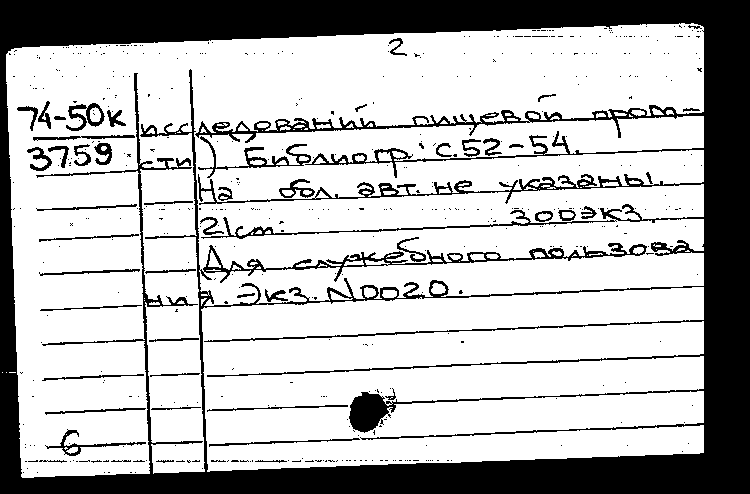 2.
74-50к исследований пищевой пром-
3759 сти). Библиогр: с.52-54.
На обл. авт. не указаны.
21см: 300экз.
Для служебного пользова
ния. Экз. N0020.
6